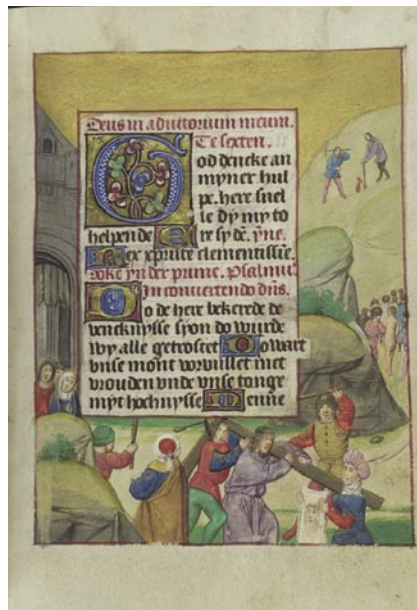 Deus in adiutorium meum.
Te sexten.
God dencke an
myner hul
pe. here snel
le dy my to
helpende Ere sy dē. ȳne.
Rex xp̄riste clementissīe.
Soke yn der prime. Psalmus
In convertendo dn̄s.
Do de here bekerde de
vencknysse syon do wurde
wy alle getrostet Dowart
vnse mont vorvullet met
vrouden vnde vnse tonge
myt hochnysse Denne